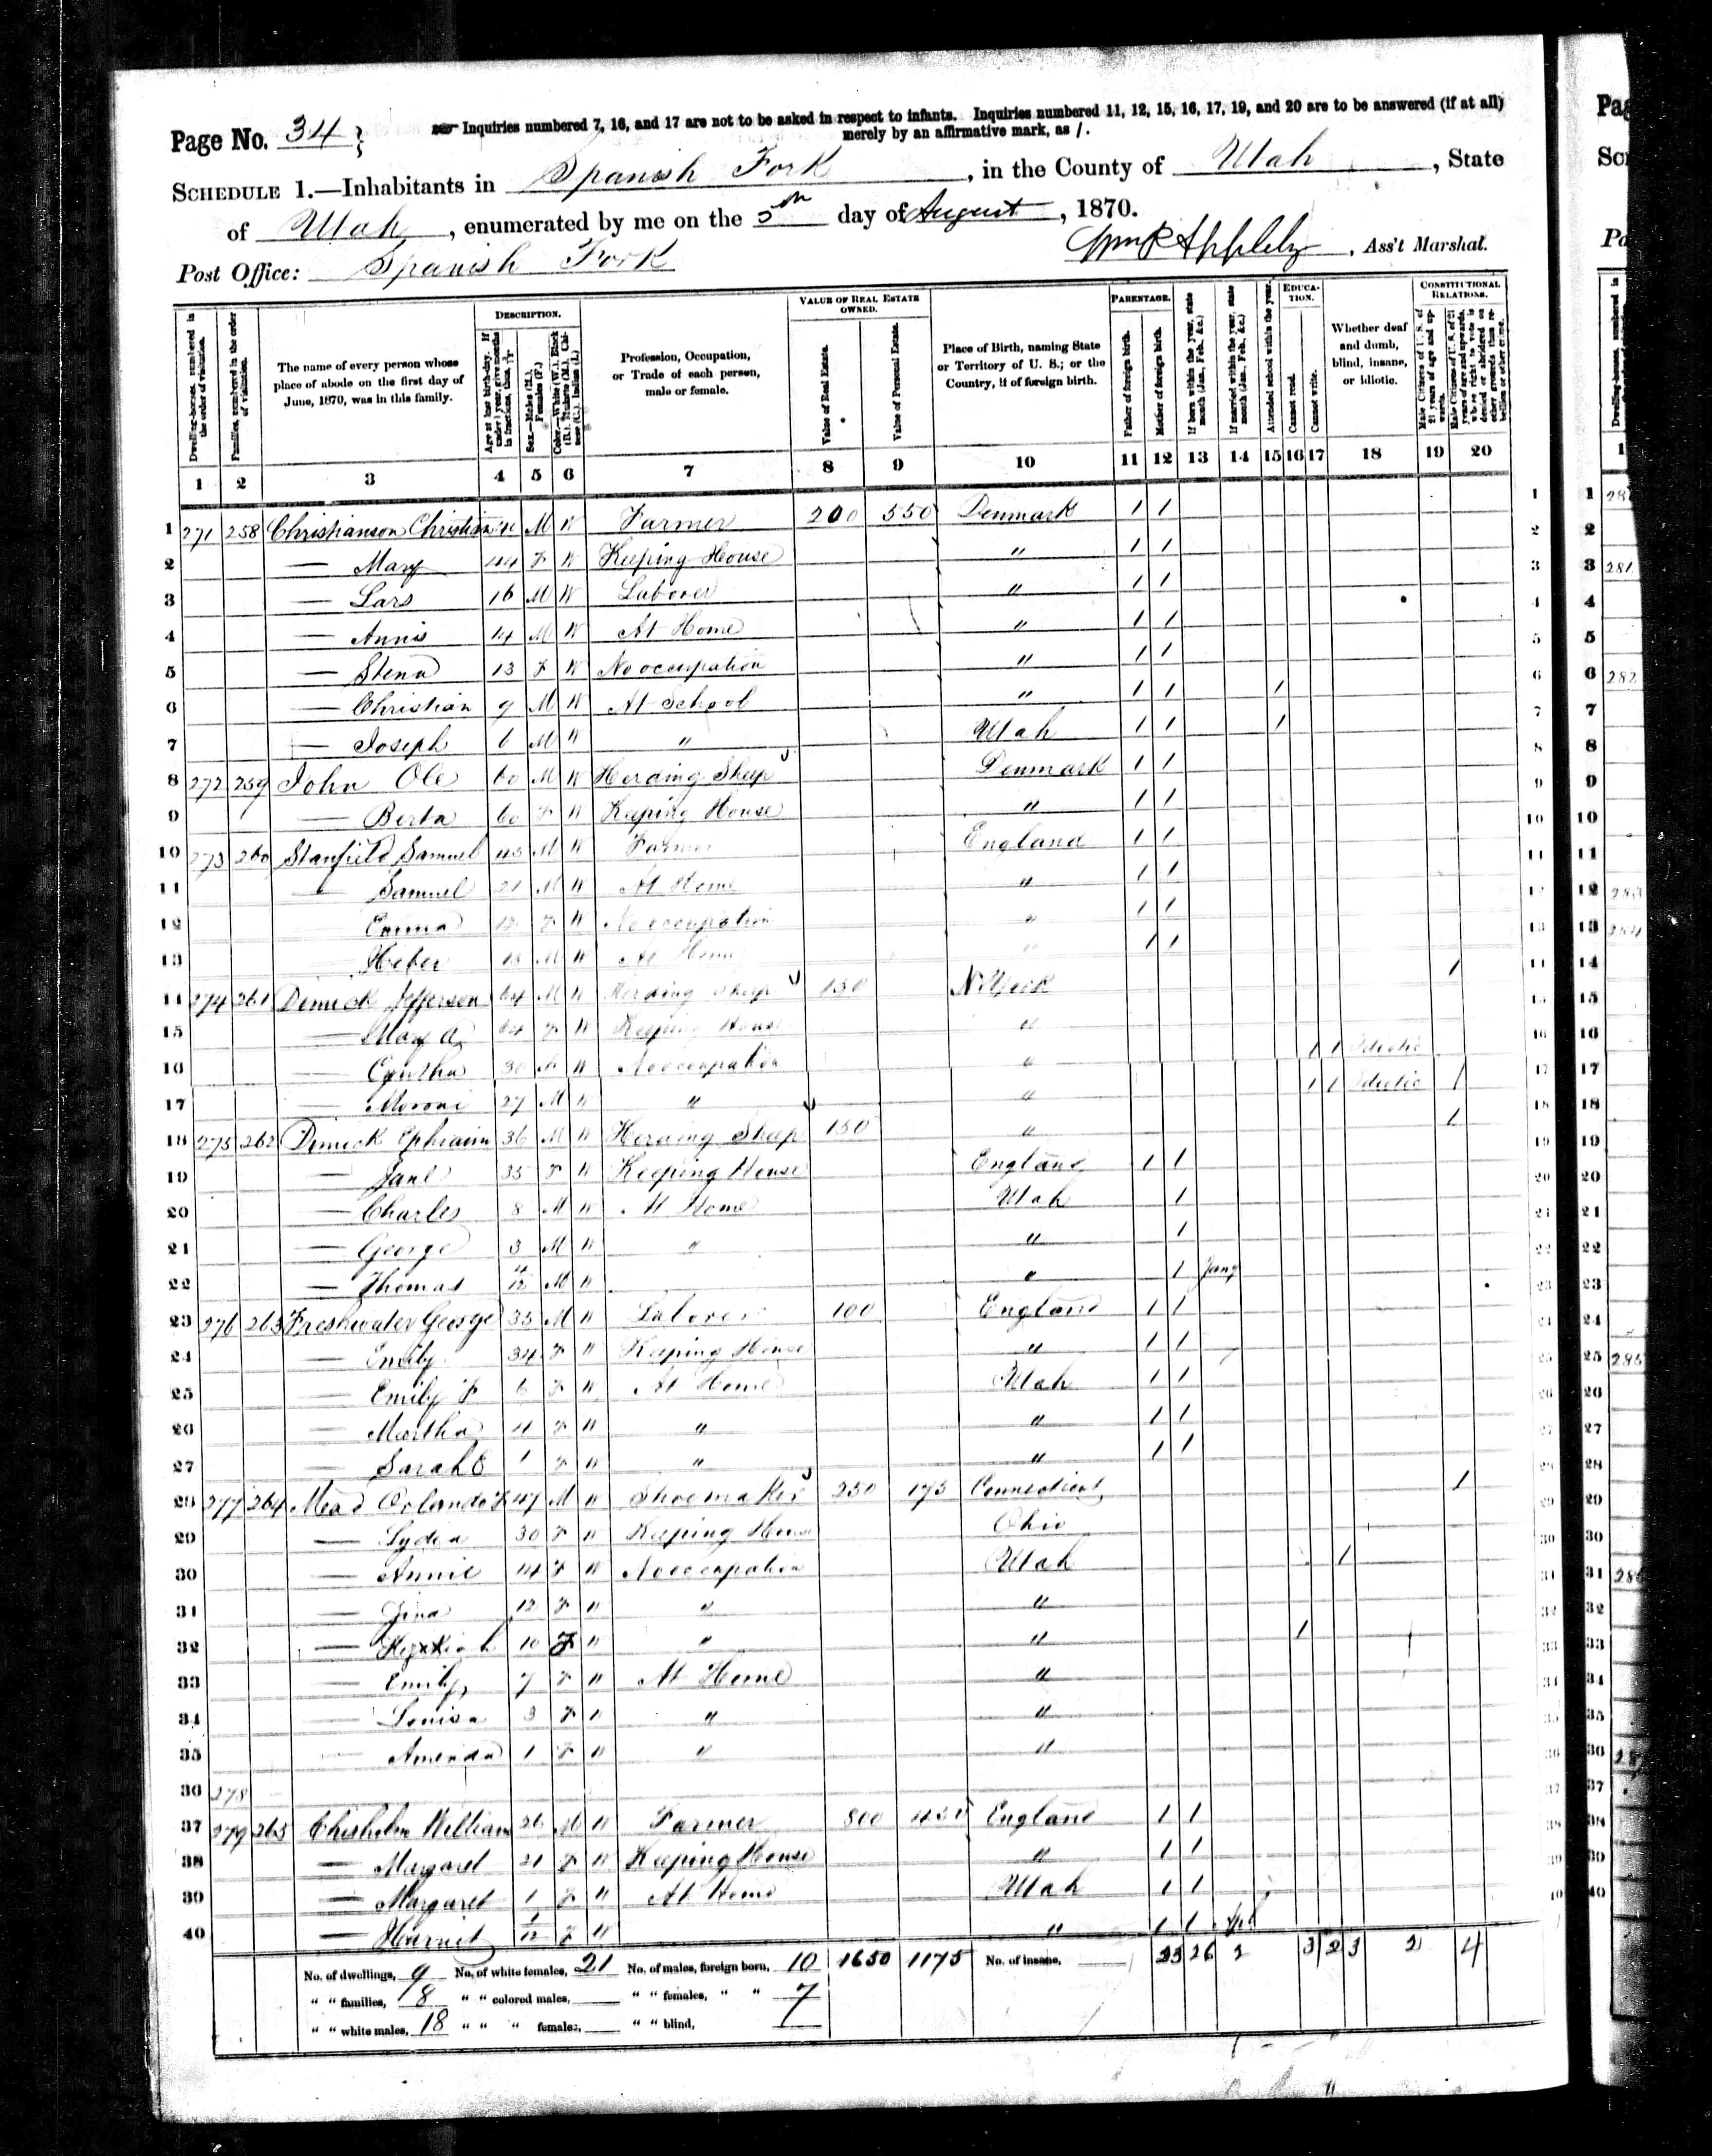 Page No. 34
Inquiries numbered 7, 16, and 17 are not to be asked in respect to infants. Inquiries numbered 11, 12, 15, 16, 17, 19, and 20 are to be answered (if at all)
merely by an affirmative mark, as /.
SCHEDULE 1.—Inhabitants in Spanish Fork, in the County of Utah, State
of Utah, enumerated by me on the 5th day of August, 1870.
Post Office: Spanish Fork
Wm R Appleby, Ass't Marshal.
DESCRIPTION. VALUE OF REAL ESTATE OWNED. PARENTAGE. EDUCATION. CONSTITUTIONAL RELATIONS.
Dwelling-houses, numbered in the order of visitation.
Families, numbered in the order of visitation.
The name of every person whose place of abode on the first day of June, 1870, was in this family.
Age at last birth-day. If under 1 year, give months in fractions, thus, 3/12.
Sex.—Males (M.), Females (F.)
Color.—White (W.), Black (B.), Mulatto (M.), Chinese (C.), Indian (I.)
Profession, Occupation, or Trade of each person, male or female.
Value of Real Estate.
Value of Personal Estate.
Place of Birth, naming State or Territory of U. S.; or the Country, if of foreign birth.
Father of foreign birth.
Mother of foreign birth.
If born within the year, state month (Jan., Feb., &c.)
If married within the year, state month (Jan., Feb., &c.)
Attended school within the year.
Cannot read.
Cannot write.
Whether deaf and dumb, blind, insane, or idiotic.
Male Citizens of U. S. of 21 years of age and upwards.
Male Citizens of U. S. of 21 years of age and upwards, whose right to vote is denied or abridged on other grounds than rebellion or other crime.
1 2 3 4 5 6 7 8 9 10 11 12 13 14 15 16 17 18 19 20
1 271 258 Christianson Christian M W Farmer 200 550 Denmark / / 1
2 — Mary 44 F W Keeping House " / / 2
3 — Lars 16 M W Laborer " / / 3
4 — Annis 14 M W At Home " / / 4
5 — Stena 13 F W No occupation " / / 5
6 — Christian 9 M W At School " / / / 6
7 — Joseph 6 M W " Utah / / / 7
8 272 259 John Ole 60 M W Herding Sheep Denmark / / 8
9 — Berta 60 F W Keeping House " / / 9
10 273 260 Stanfield Samuel 45 M W Farmer England / / 10
11 Samuel 21 M W At Home " / / 11
12 Emma F W No occupation " / / 12
13 Heber M W At Home " / / 13
14 274 261 Dimick Jefferson 64 M W Herding Sheep 150 N. York / 14
15 — Mary A 64 F W Keeping House " 15
16 — Cyntha 30 F W No occupation " / / Idiotic 16
17 — Moroni 27 M W " " / / Idiotic / 17
18 275 262 Dimick Ephraim 36 M W Herding Sheep 150 " / 18
19 — Jane 35 F W Keeping House England / / 19
20 — Charles 8 M W At Home Utah / 20
21 — George 3 M W " " / 21
22 — Thomas M W " / Jany 22
23 276 263 Freshwater George 35 M W Laborer 100 England / / 23
24 — Emily 34 F W Keeping House " / / 24
25 — Emily F 6 F W At Home Utah / / 25
26 — Martha 4 F W " " / / 26
27 — Sarah E 1 F W " " / / 27
28 277 264 Mead Orlando F 47 M W Shoemaker 250 175 Connecticut / 28
29 — Lydia 30 F W Keeping House Ohio 29
30 — Annie 14 F W No occupation Utah / 30
31 — Zina 12 F W " " 31
32 — 10 F W " " / 32
33 — Emily 7 F W At Home " 33
34 — Louisa 3 F W " " 34
35 — Amenda 1 F W " " 35
36 278 36
37 279 265 Chisholm William 26 M W Farmer 800 450 England / / 37
38 — Margaret 21 F W Keeping House " / / 38
39 — Margaret 1 F W At Home Utah / / 39
40 — Harriet F W " / / Apl 40
No. of dwellings, 9 No. of white females, 21 No. of males, foreign born, 10 1650 1175 No. of insane, 23 26 2 3 2 3 2 4
" " families, 8 " " colored males, " " females, " " 7
" " white males, 18 " " " females, " " blind,